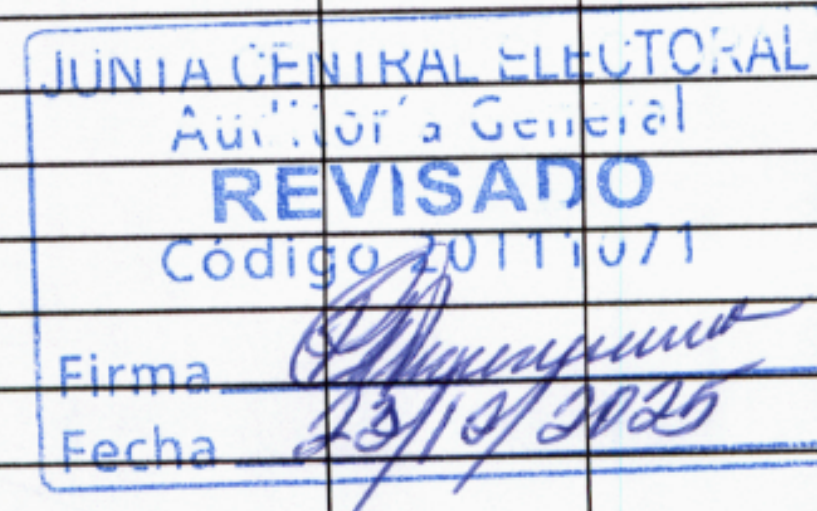 JUNTA CENTRAL ELECTORAL
Auditoría General
REVISADO
Código 20111071
Firma
Fecha 23/12/2025